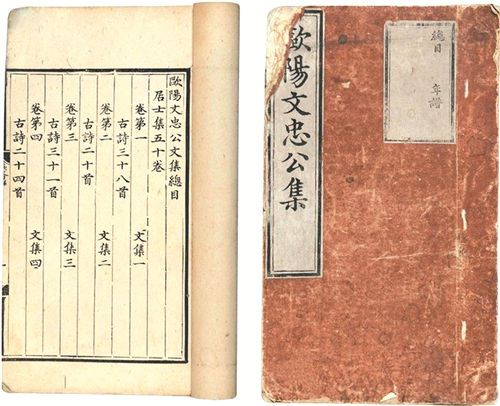 歐陽文忠公文集總目
居士集五十卷
卷第一 文集一
古詩三十八首
卷第二 文集二
古詩二十首
卷第三 文集三
古詩三十一首
卷第四 文集四
古詩二十四首
總目 年譜
歐陽文忠公集